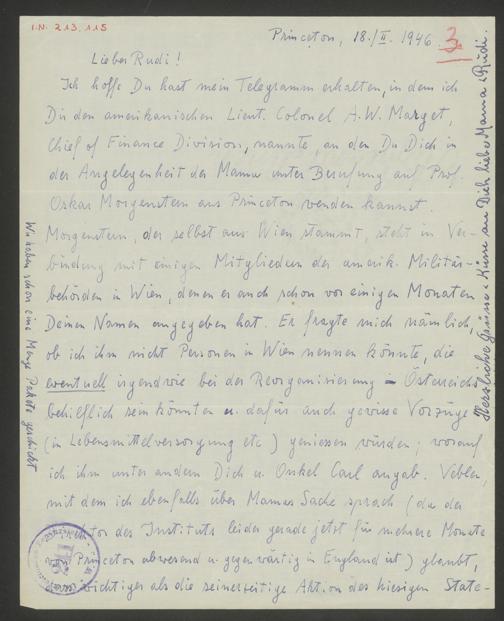 I.N. 213.115
Princeton, 18./II. 1946.
3.
Lieber Rudi!
Ich hoffe Du hast mein Telegramm erhalten, in dem ich
Dir den amerikanischen Lieut. Colonel A.W. Marget,
Chief of Finance Division, nannte, an den Du Dich in
der Angelegenheit der Mama unter Berufung auf Prof.
Oskar Morgenstern aus Princeton wenden kannst.
Morgenstern, der selbst aus Wien stammt, steht in Ver-
bindung mit einigen Mitgliedern der amerik. Militär-
behörden in Wien, denen er auch schon vor einigen Monaten
Deinen Namen angegeben hat. Er fragte mich nämlich,
ob ich ihm nicht Personen in Wien nennen könnte, die
eventuell irgendwie bei der Reorganisierung Österreichs
behilflich sein könnten u. dafür auch gewisse Vorzüge
(in Lebensmittelversorgung etc) geniessen würden; worauf
ich ihm unter andern Dich u. Onkel Carl angab. Veblen,
mit dem ich ebenfalls über Mamas Sache sprach (da der
des Instituts leider gerade jetzt für mehrere Monate
von Princeton abwesend u. gegenwärtig in England ist) glaubt,
wichtiger als die seinerzeitige Aktion des hiesigen State-
Wir haben schon eine Menge Pakete geschickt
Herzliche Grüsse u. Küsse an Dich, liebe Mama u. Rudi.